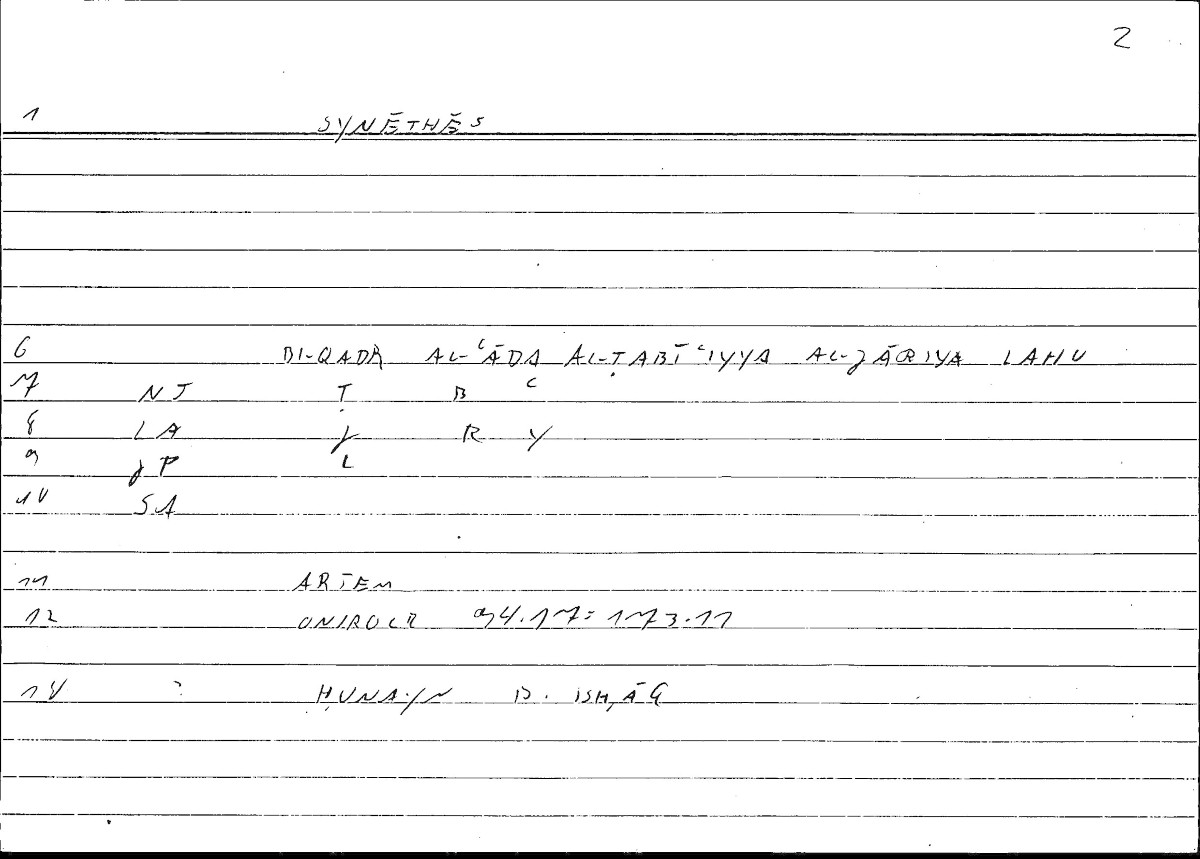 2
1 SYNĒTHĒS
6 BI-QADR AL-ʿĀDA AL-ṬABĪʿIYYA AL-JĀRIYA LAHU
7 NJ Ṭ B ʿ
8 LA J R Y
9 JP L
10 SA
11 ARTEM
12 ONIROCR 94.17=173.11
14 ? ḤUNAYN B. ISḤĀQ